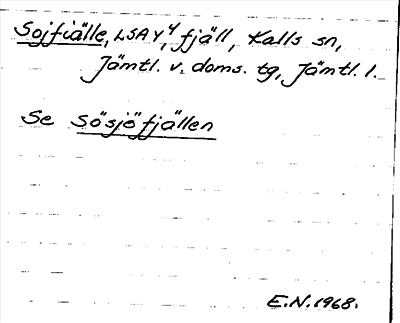 Sojfiälle, LSA Y4, fjäll, Kalls sn,
Jämtl. v. doms. tg, Jämtl. l.
Se Sösjöfjällen
E.N. 1968.